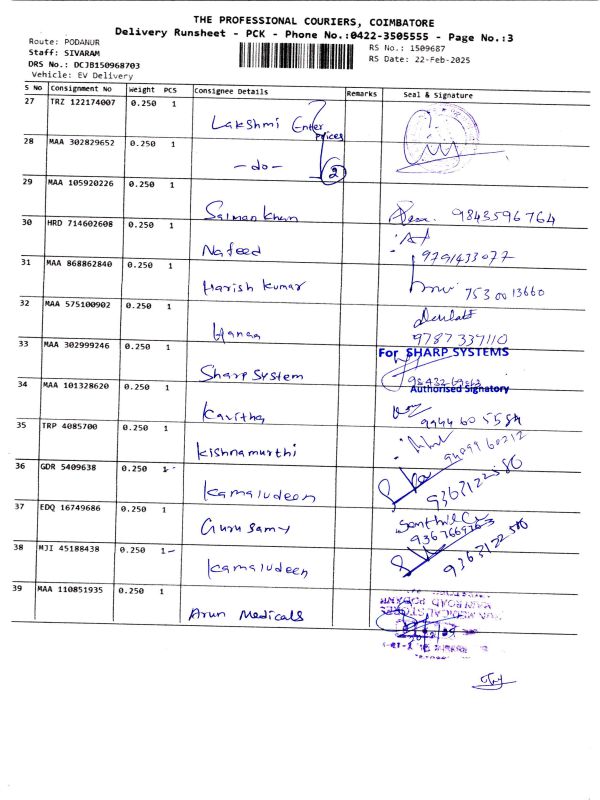 THE PROFESSIONAL COURIERS, COIMBATORE
Delivery Runsheet - PCK - Phone No.:0422-3505555 - Page No.:3
Route: PODANUR
RS No.: 1509687
Staff: SIVARAM
RS Date: 22-Feb-2025
DRS No.: DCJB150968703
Vehicle: EV Delivery
S No Consignment No Weight PCS Consignee Details Remarks Seal & Signature
27 TRZ 122174007 0.250 1 Lakshmi Enterprices
28 MAA 302829652 0.250 1 -do- 2
29 MAA 105920226 0.250 1 Salman Khan 9843596764
30 HRD 714602608 0.250 1 Nafeed 9791433077
31 MAA 868862840 0.250 1 Harish Kumar 7530013660
32 MAA 575100902 0.250 1 Hanaa 9787337110
33 MAA 302999246 0.250 1 Sharp System For SHARP SYSTEMS
Authorised Signatory
34 MAA 101328620 0.250 1 Kavitha 9944605584
35 TRP 4085700 0.250 1 Kishnamurthi 9499960212
36 GDR 5409638 0.250 1 Kamaludeen 9363122580
37 EDQ 16749686 0.250 1 Gurusamy
38 MJI 45188438 0.250 1 Kamaludeen 9363122580
39 MAA 110851935 0.250 1 Arun Medicals